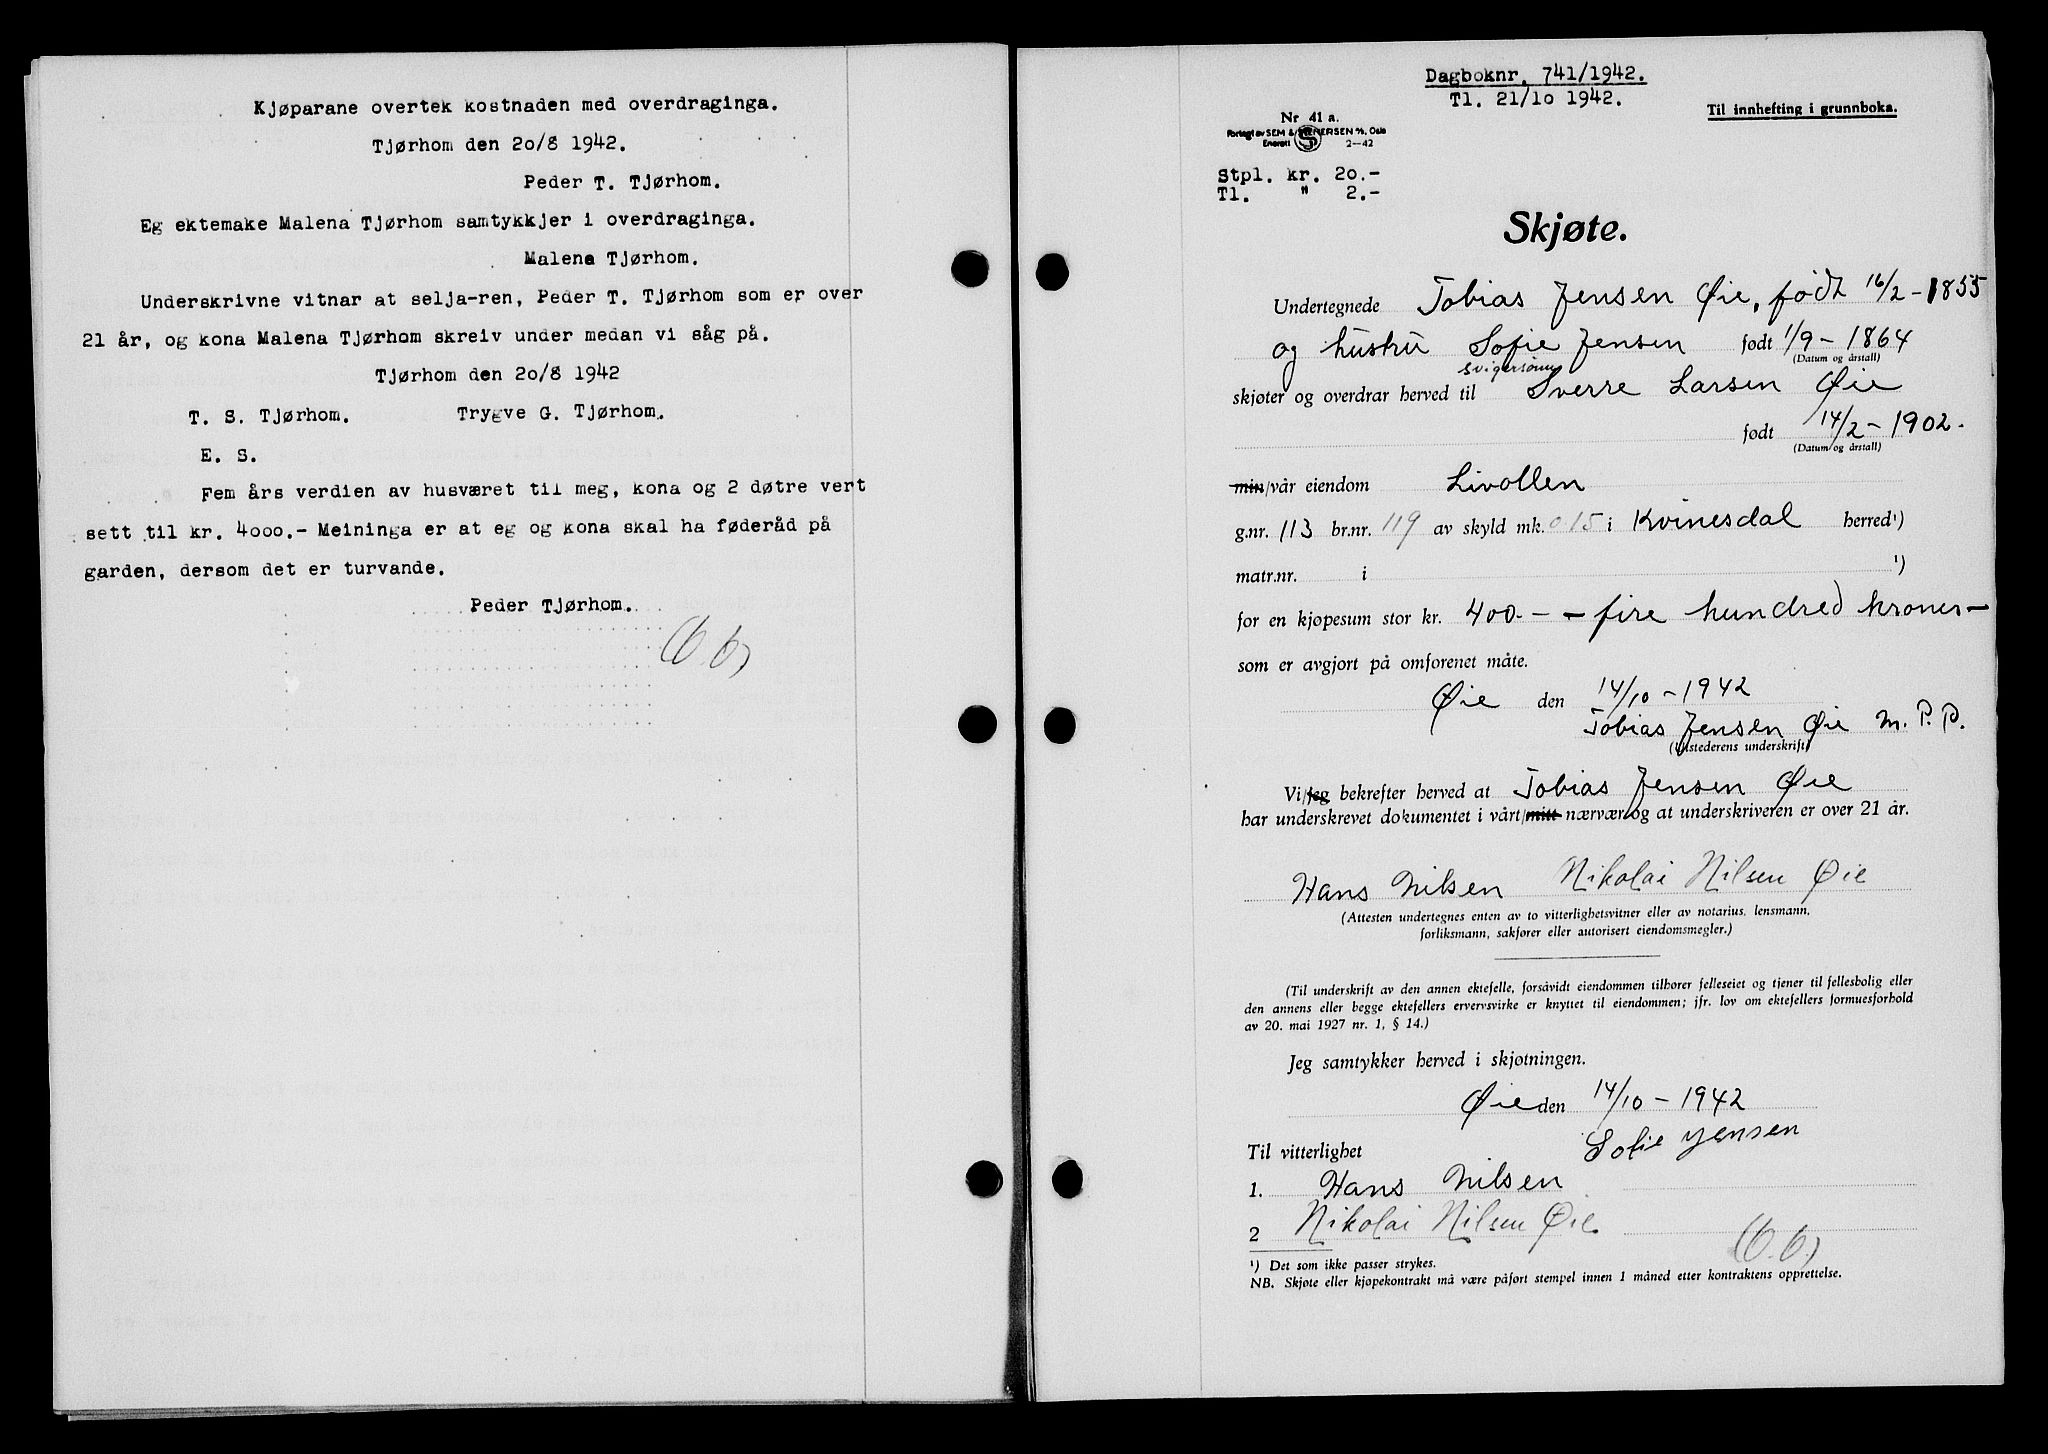 Kjøparane overtek kostnaden med overdraginga.
Tjørhom den 20/8 1942.
Peder T. Tjørhom.
Eg ektemake Malena Tjørhom samtykkjer i overdraginga.
Malena Tjørhom.
Underskrivne vitnar at selja-ren, Peder T. Tjørhom som er over
21 år, og kona Malena Tjørhom skreiv under medan vi såg på.
Tjørhom den 20/8 1942
T. S. Tjørhom. Trygve G. Tjørhom.
E. S.
Fem års verdien av husværet til meg, kona og 2 døtre vert
sett til kr. 4000.- Meininga er at eg og kona skal ha føderåd på
garden, dersom det er turvande.
Peder Tjørhom.
Dagboknr. 741/1942.
Tl. 21/10 1942.
Til innhefting i grunnboka.
Nr 41 a.
Forlagt av SEM & STENERSEN A/S, Oslo
Enerett 2-42
Stpl. kr. 20.-
Tl. " 2.-
Skjøte.
Undertegnede Tobias Jensen Øie, født 16/2-1855
og hustru Sofie Jensen født 1/9-1864
(Datum og årstall)
svigersønn
skjøter og overdrar herved til Sverre Larsen Øie
født 14/2-1902.
(Datum og årstall)
min/vår eiendom Livollen
g.nr. 113 br.nr. 119 av skyld mk. 0.15 i Kvinesdal herred¹)
matr.nr. i ¹)
for en kjøpesum stor kr. 400.- - fire hundred kroner-
som er avgjort på omforenet måte.
Øie den 14/10-1942
Tobias Jensen Øie m. P. P.
(Utstederens underskrift)
Vi/jeg bekrefter herved at Tobias Jensen Øie
har underskrevet dokumentet i vårt/mitt nærvær og at underskriveren er over 21 år.
Hans Nilsen Nikolai Nilsen Øie
(Attesten undertegnes enten av to vitterlighetsvitner eller av notarius, lensmann,
forliksmann, sakfører eller autorisert eiendomsmegler.)
(Til underskrift av den annen ektefelle, forsåvidt eiendommen tilhører felleseiet og tjener til fellesbolig eller
den annens eller begge ektefellers ervervsvirke er knyttet til eiendommen; jfr. lov om ektefellers formuesforhold
av 20. mai 1927 nr. 1, § 14.)
Jeg samtykker herved i skjøtningen.
Øie den 14/10-1942
Sofie Jensen
Til vitterlighet
1. Hans Nilsen
2 Nikolai Nilsen Øie.
¹) Det som ikke passer strykes.
NB. Skjøte eller kjøpekontrakt må være påført stempel innen 1 måned etter kontraktens opprettelse.